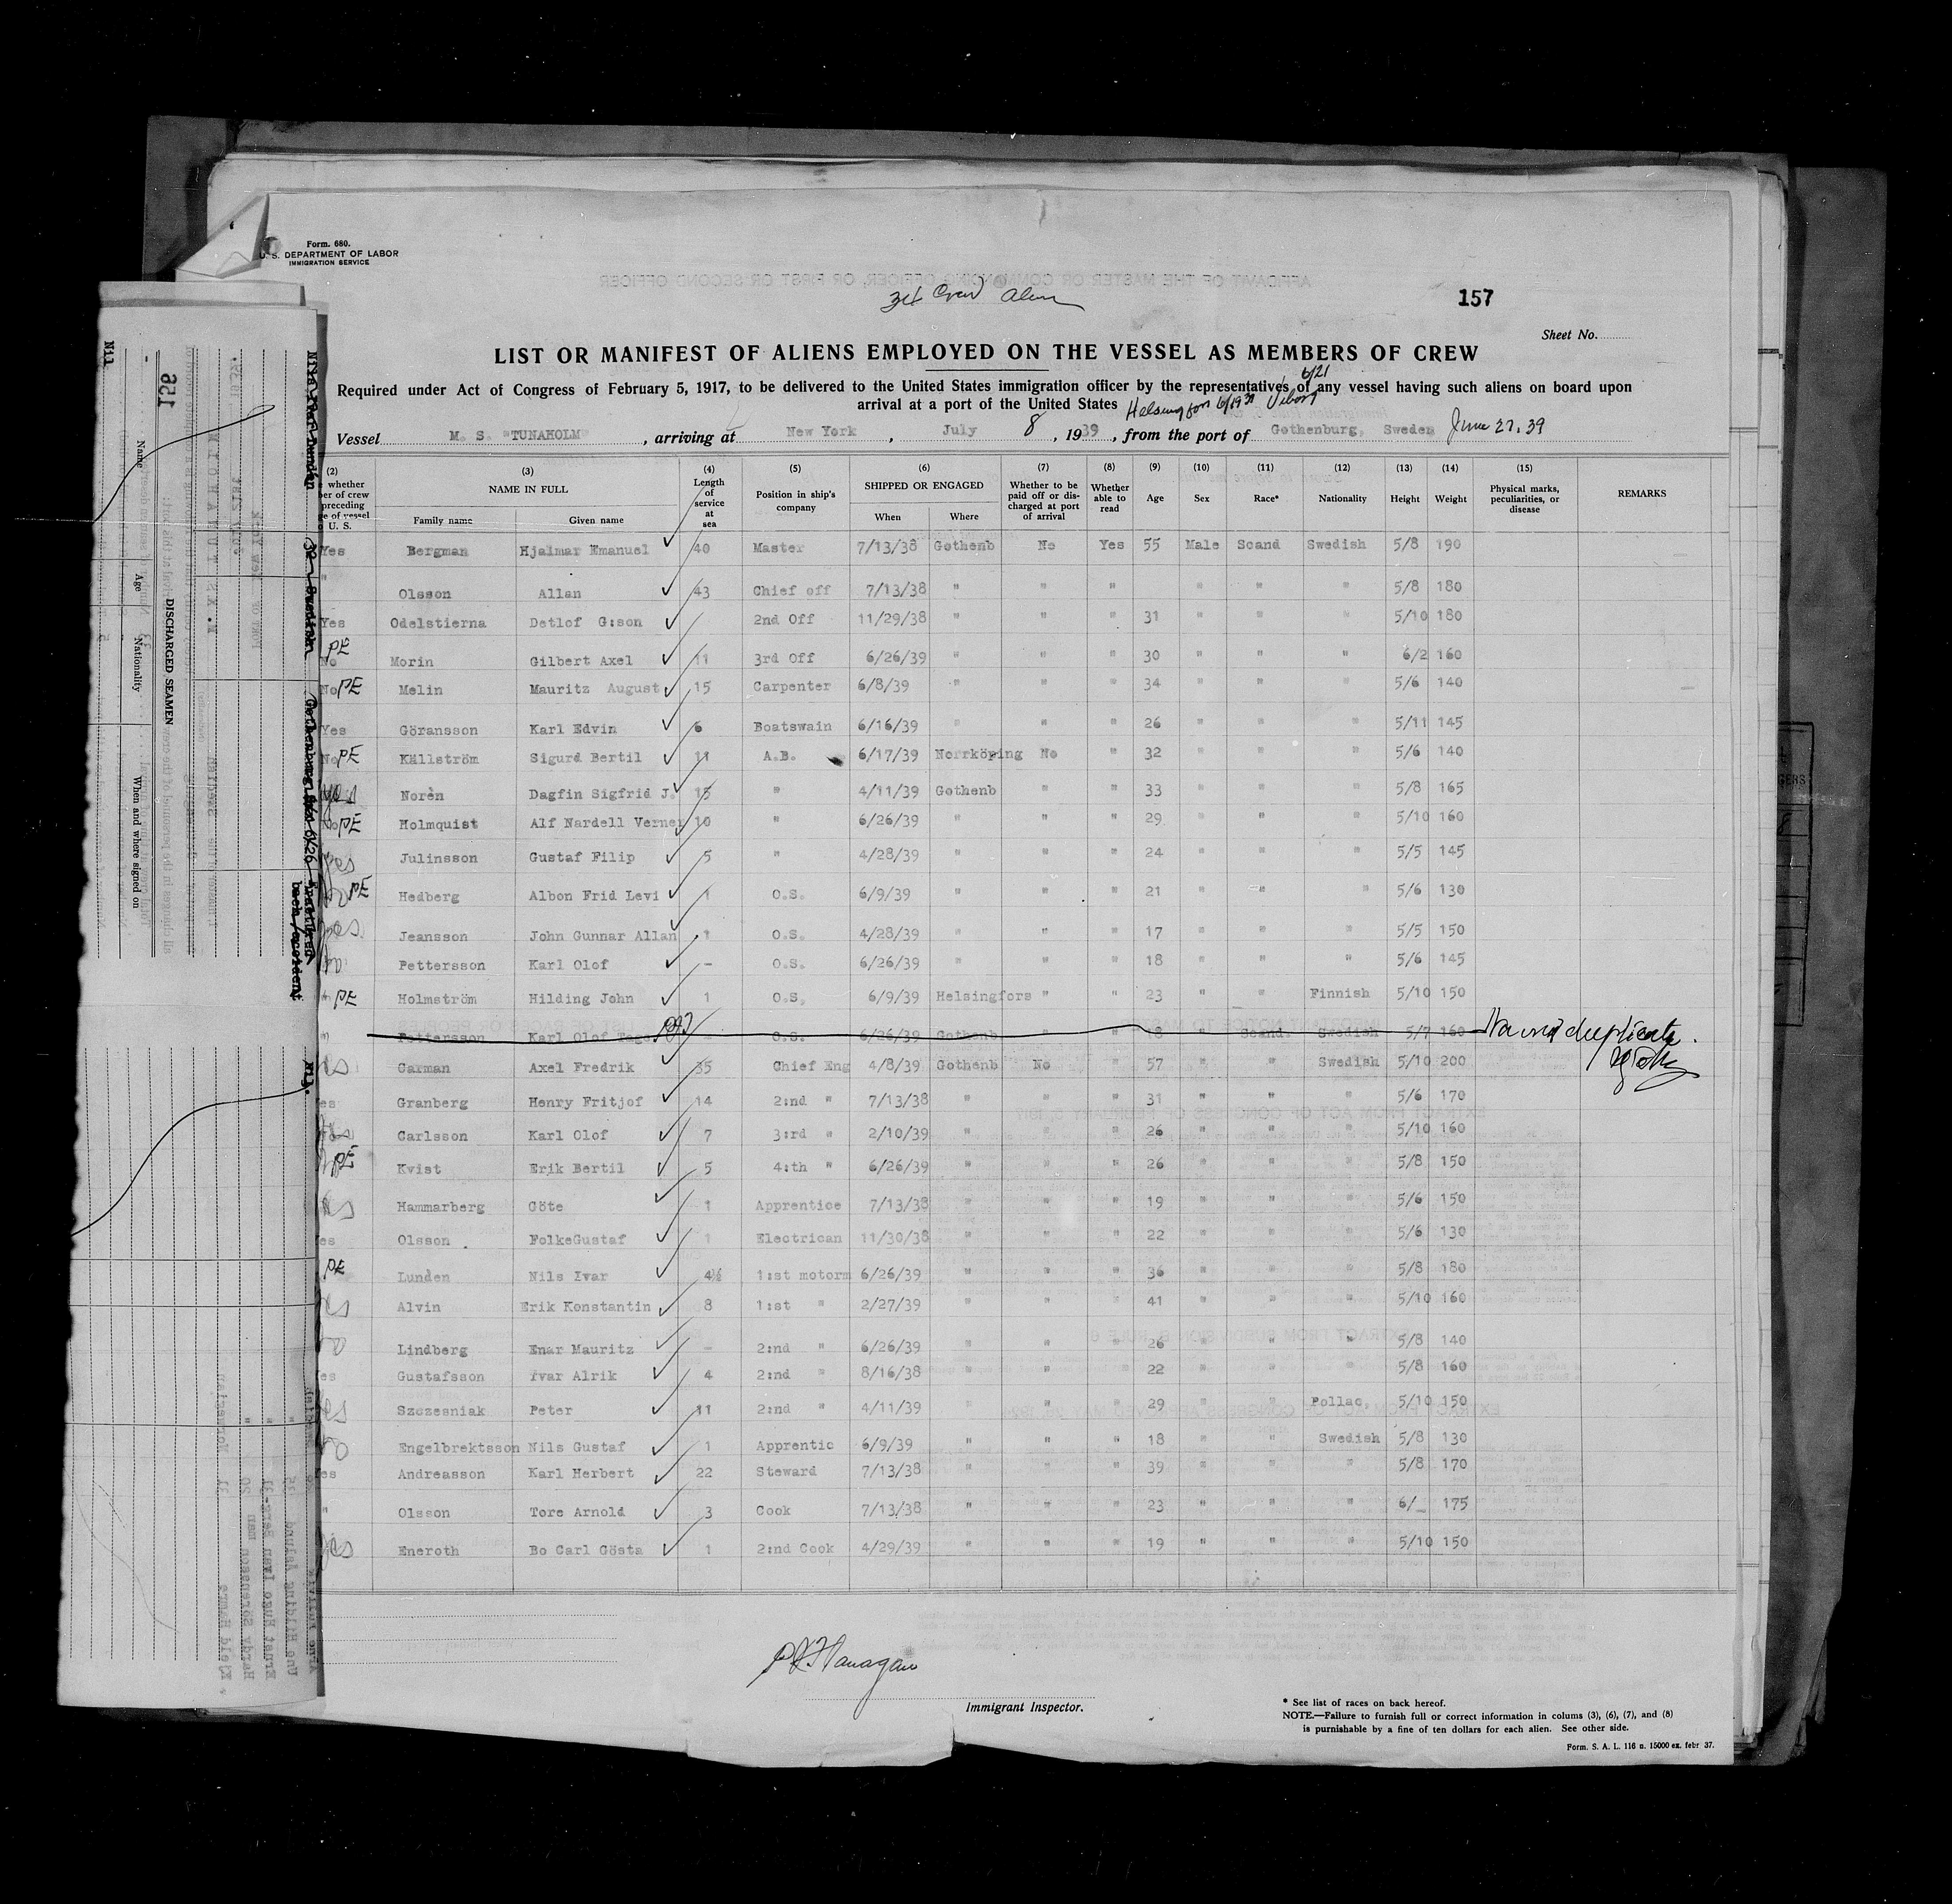 Form. 680.
U. S. DEPARTMENT OF LABOR
IMMIGRATION SERVICE
Crew Alien
157
Sheet No.
LIST OR MANIFEST OF ALIENS EMPLOYED ON THE VESSEL AS MEMBERS OF CREW
Required under Act of Congress of February 5, 1917, to be delivered to the United States immigration officer by the representatives of any vessel having such aliens on board upon
arrival at a port of the United States Helsingfors 6/19 39 Viborg 6/21
Vessel M. S. "TUNAHOLM" , arriving at New York , July 8 , 1939 , from the port of Gothenburg, Sweden June 27. 39
(2) (3) (4) (5) (6) (7) (8) (9) (10) (11) (12) (13) (14) (15)
whether
er of crew
preceding
e of vessel
U. S.
NAME IN FULL
Family name Given name
Length of service at sea
Position in ship's company
SHIPPED OR ENGAGED
When Where
Whether to be paid off or dis-charged at port of arrival
Whether able to read
Age Sex Race* Nationality Height Weight
Physical marks, peculiarities, or disease
REMARKS
Yes Bergman Hjalmar Emanuel 40 Master 7/13/38 Gothenb No Yes 55 Male Scand Swedish 5/8 190
" Olsson Allan 43 Chief off 7/13/38 " " " " " " 5/8 180
Yes Odelstierna Detlof G:son 2nd Off 11/29/38 " " " 31 " " " 5/10 180
No PE Morin Gilbert Axel 11 3rd Off 6/26/39 " " " 30 " " " 6/2 160
No PE Melin Mauritz August 15 Carpenter 6/8/39 " " " 34 " " " 5/6 140
Yes Göransson Karl Edvin 6 Boatswain 6/16/39 " " " 26 " " " 5/11 145
No PE Källström Sigurd Bertil 11 A.B. 6/17/39 Norrköping No " 32 " " " 5/6 140
Norèn Dagfin Sigfrid J. 15 " 4/11/39 Gothenb " " 33 " " " 5/8 165
No PE Holmquist Alf Nardell Verner 10 " 6/26/39 " " " 29 " " " 5/10 160
Yes Julinsson Gustaf Filip 5 " 4/28/39 " " " 24 " " " 5/5 145
PE Hedberg Albon Frid Levi 1 O.S. 6/9/39 " " " 21 " " " 5/6 130
Yes Jeansson John Gunnar Allan 1 O.S. 4/28/39 " " " 17 " " " 5/5 150
No Pettersson Karl Olof - O.S. 6/26/39 " " " 18 " " " 5/6 145
" PE Holmström Hilding John 1 O.S. 6/9/39 Helsingfors " " 23 " " Finnish 5/10 150
Pettersson Karl Olof Tage O.S. 6/26/39 Gothenb " " 18 " Scand. Swedish 5/7 160 Named duplicate.
Carman Axel Fredrik 35 Chief Eng 4/8/39 Gothenb No " 57 " " Swedish 5/10 200
es Granberg Henry Fritjof 14 2:nd " 7/13/38 " " " 31 " " " 5/6 170
Carlsson Karl Olof 7 3:rd " 2/10/39 " " " 26 " " " 5/10 160
PE Kvist Erik Bertil 5 4:th " 6/26/39 " " " 26 " " " 5/8 150
Hammarberg Göte 1 Apprentice 7/13/38 " " " 19 " " " 5/6 150
es Olsson FolkeGustaf 1 Electrican 11/30/38 " " " 22 " " " 5/6 130
PE Lundèn Nils Ivar 4½ 1:st motorm 6/26/39 " " " 36 " " " 5/8 180
Alvin Erik Konstantin 8 1:st " 2/27/39 " " " 41 " " " 5/10 160
Lindberg Enar Mauritz - 2:nd " 6/26/39 " " " 26 " " " 5/8 140
es Gustafsson Ivar Alrik 4 2:nd " 8/16/38 " " " 22 " " " 5/8 160
Szczesniak Peter 11 2:nd " 4/11/39 " " " 29 " " Pollac. 5/10 150
Engelbrektsson Nils Gustaf 1 Apprentic 6/9/39 " " " 18 " " Swedish 5/8 130
es Andreasson Karl Herbert 22 Steward 7/13/38 " " " 39 " " " 5/8 170
" Olsson Tore Arnold 3 Cook 7/13/38 " " " 23 " " " 6/_ 175
Yes Eneroth Bo Carl Gösta 1 2:nd Cook 4/29/39 " " " 19 " " " 5/10 150
Flanagan
Immigrant Inspector.
* See list of races on back hereof.
NOTE.—Failure to furnish full or correct information in colums (3), (6), (7), and (8)
is punishable by a fine of ten dollars for each alien. See other side.
Form. S. A. L. 116 n. 15000 ex. febr 37.
Nil
156
DISCHARGED SEAMEN
Name Age Nationality When and where signed on
Nil.